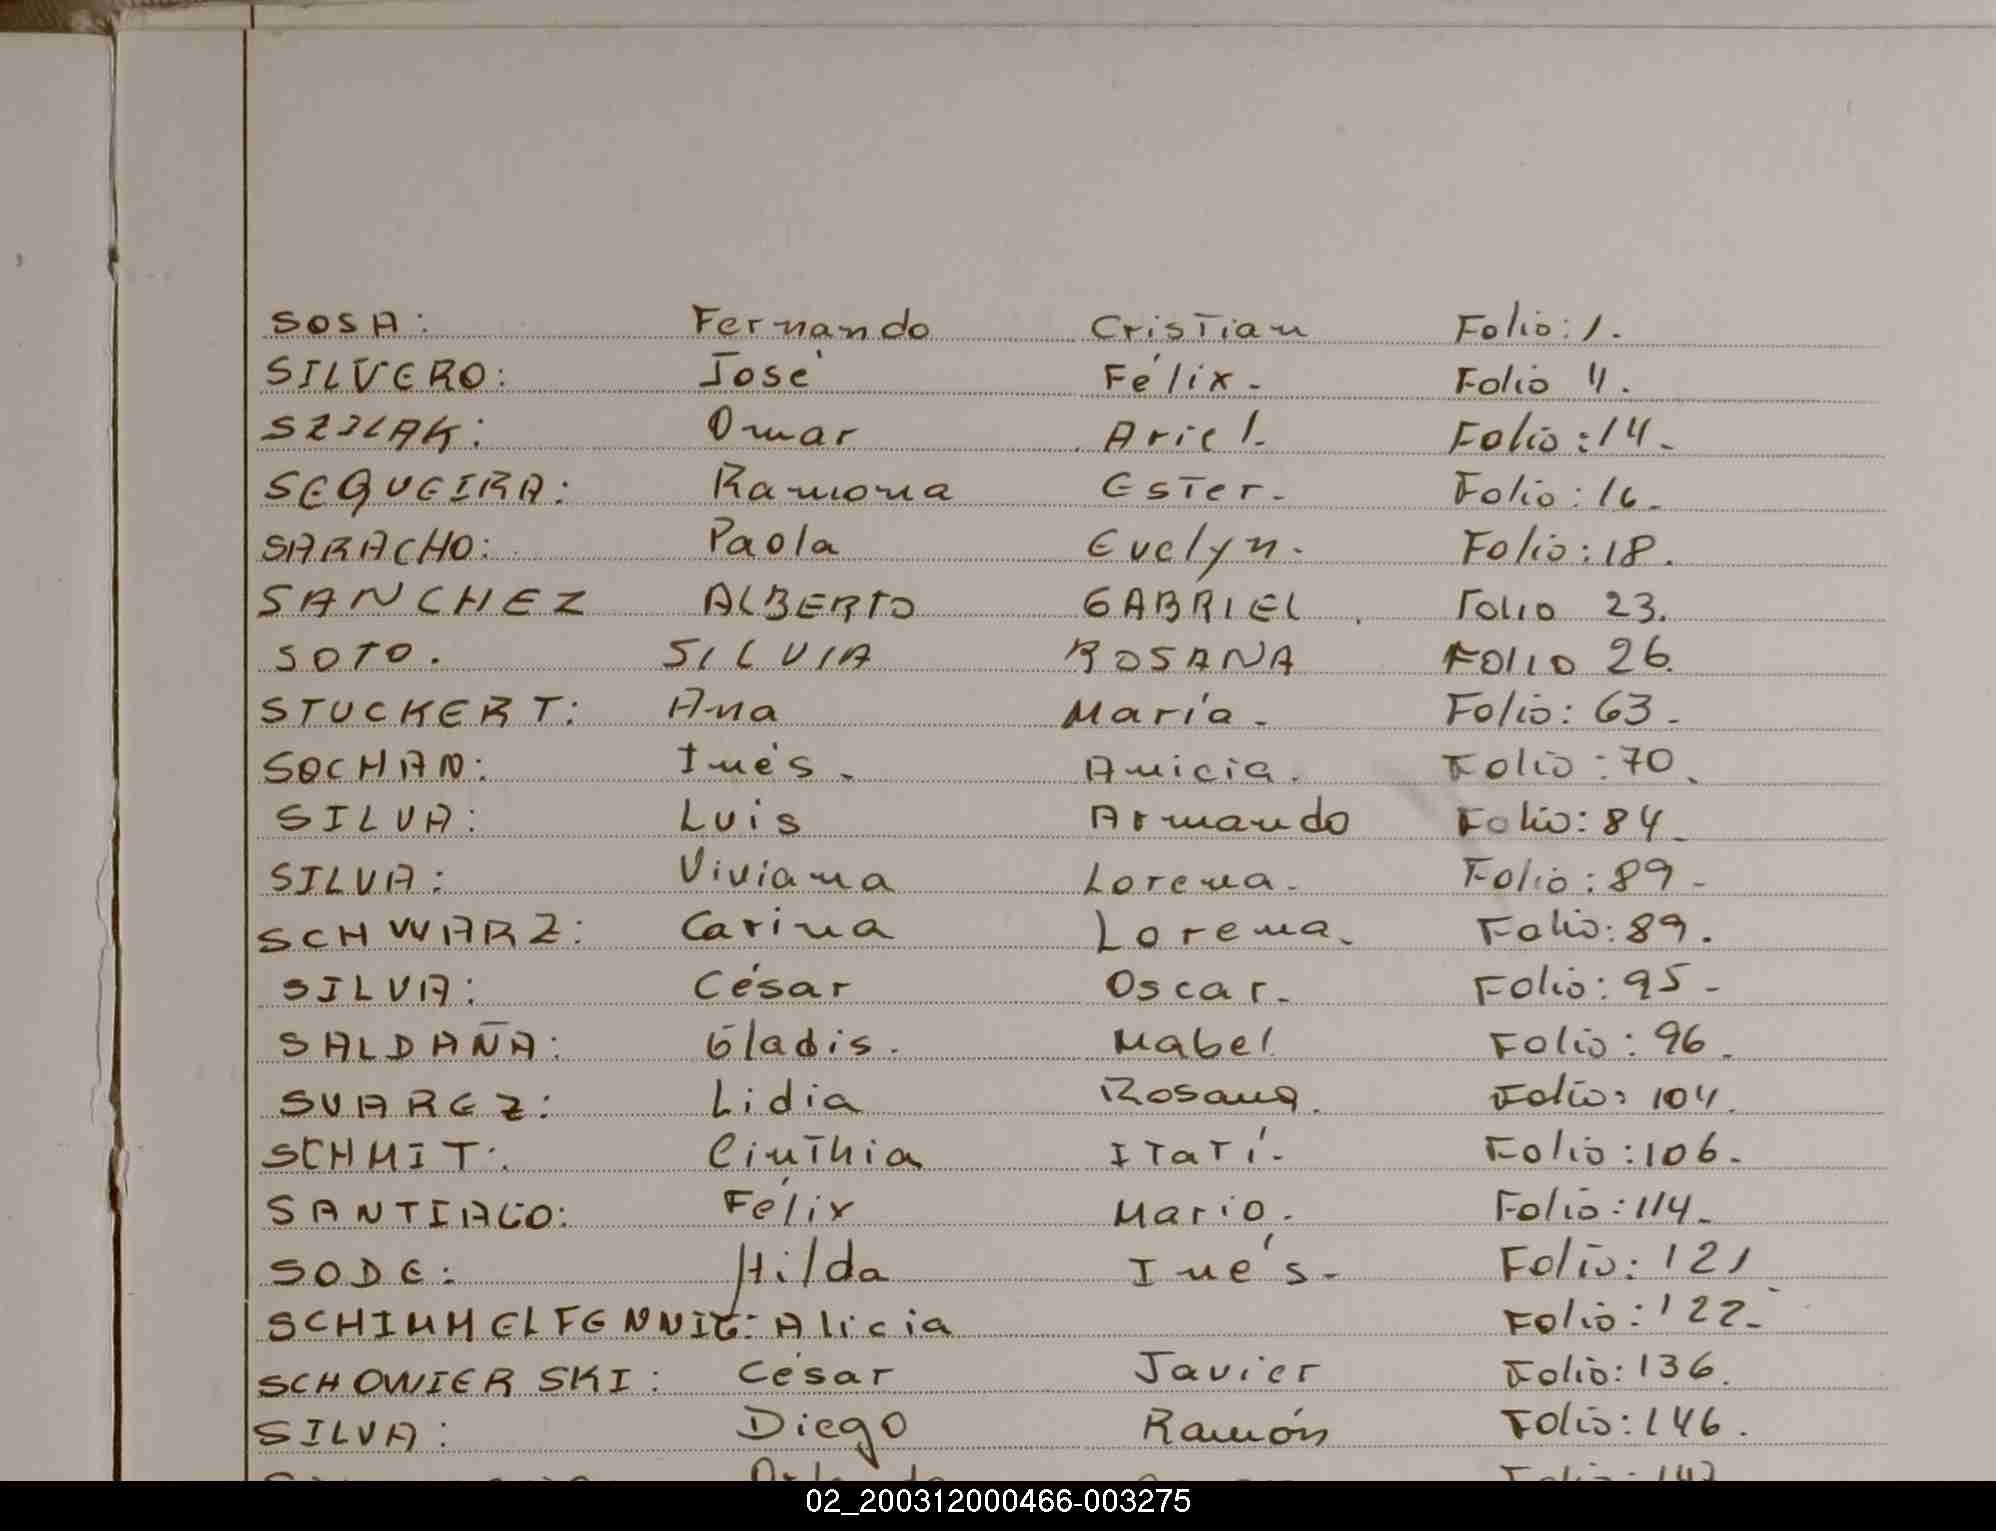 SOSA: Fernando Cristian Folio: 1.
SILVERO: José Félix. Folio 4.
SZILAK: Omar Ariel. Folio: 14.
SEQUEIRA: Ramona Ester. Folio: 16.
SARACHO: Paola Evelyn. Folio: 18.
SANCHEZ ALBERTO GABRIEL Folio 23.
SOTO. SILVIA ROSANA FOLIO 26.
STUCKERT: Ana María. Folio: 63.
SOCHAN: Inés. Anicia. Folio: 70.
SILVA: Luis Armando Folio: 84.
SILVA: Viviana Lorena. Folio: 89.
SCHWARZ: Carina Lorena. Folio: 89.
SILVA: César Oscar. Folio: 95.
SALDAÑA: Gladis. Mabel Folio: 96.
SUAREZ: Lidia Rosana. Folio: 104.
SCHMIT: Cinthia Itatí. Folio: 106.
SANTIAGO: Félix Mario. Folio: 114.
SODE: Hilda Inés. Folio: 121
SCHIMMELFENNIG: Alicia Folio: 122.
SCHOWIERSKI: César Javier Folio: 136.
SILVA: Diego Ramón Folio: 146.
02_200312000466-003275